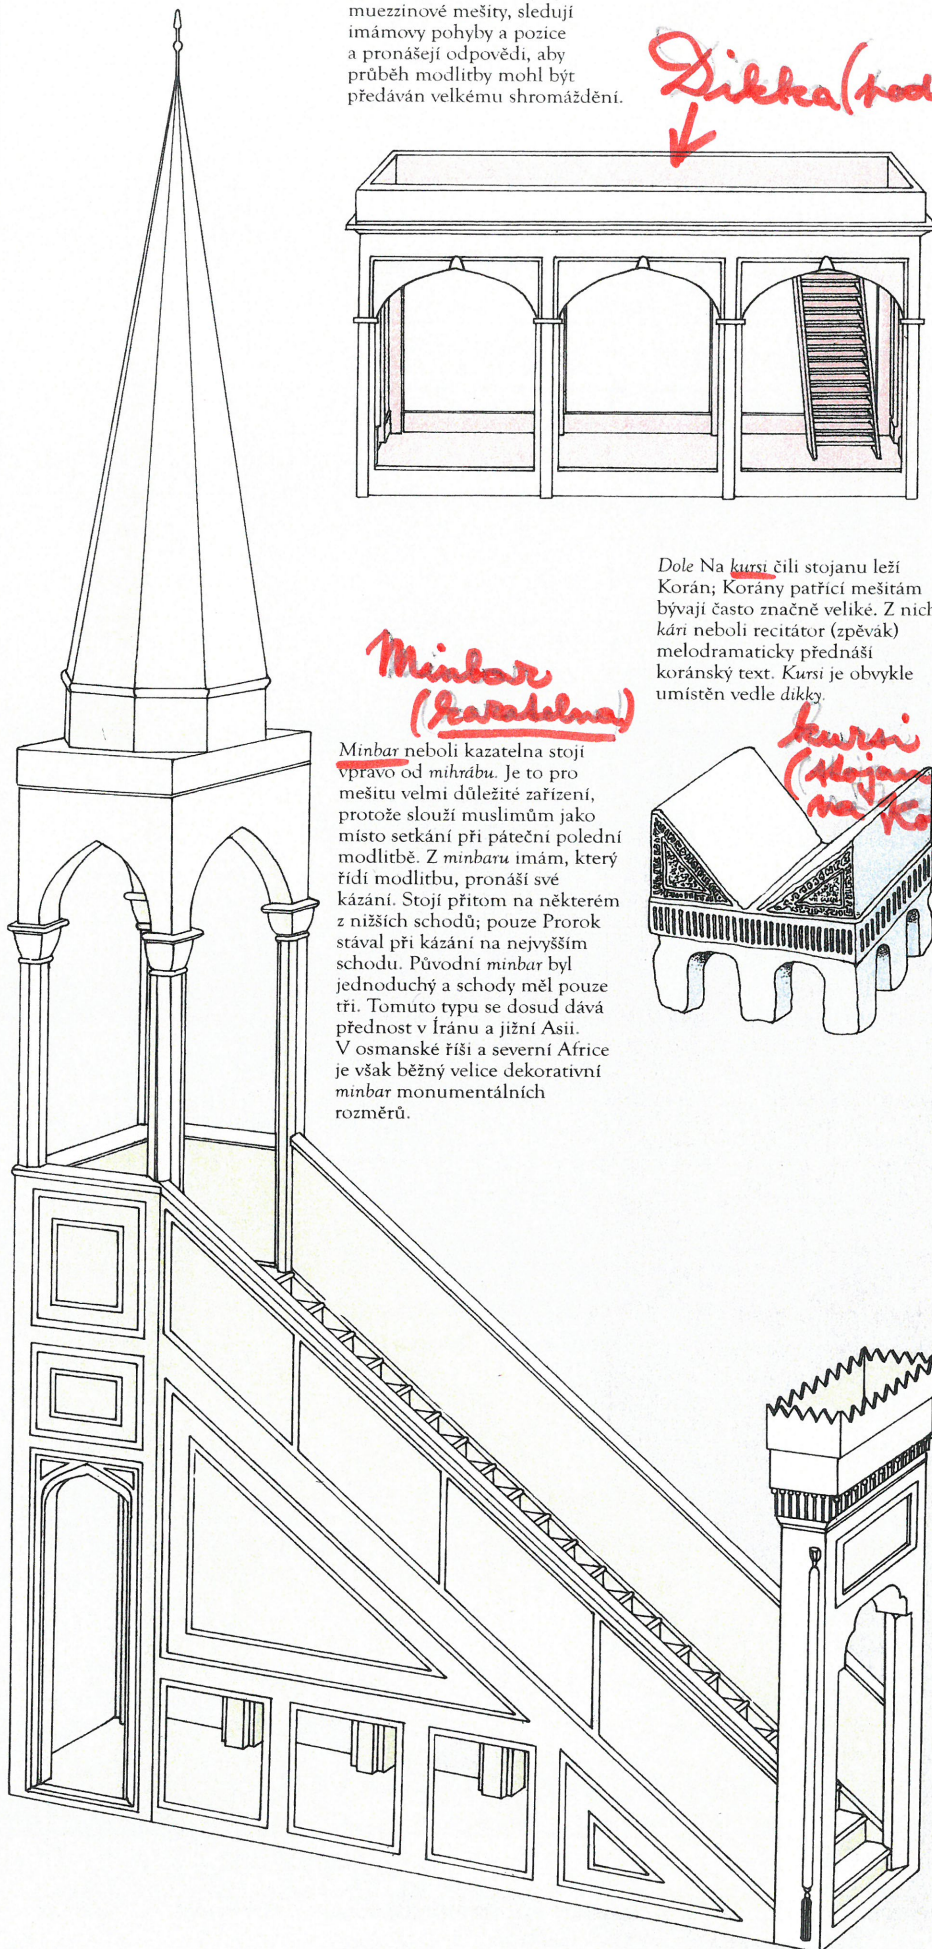 muezzinové mešity, sledují
imámovy pohyby a pozice
a pronášejí odpovědi, aby
průběh modlitby mohl být
předáván velkému shromáždění.
Dikka (pod
Dole Na kursi čili stojanu leží
Korán; Korány patřící mešitám
bývají často značně veliké. Z nich
kári neboli recitátor (zpěvák)
melodramaticky přednáší
koránský text. Kursi je obvykle
umístěn vedle dikky.
kursi
(stojan
na Ko
Minbar
(kazatelna)
Minbar neboli kazatelna stojí
vpravo od mihrábu. Je to pro
mešitu velmi důležité zařízení,
protože slouží muslimům jako
místo setkání při páteční polední
modlitbě. Z minbaru imám, který
řídí modlitbu, pronáší své
kázání. Stojí přitom na některém
z nižších schodů; pouze Prorok
stával při kázání na nejvyšším
schodu. Původní minbar byl
jednoduchý a schody měl pouze
tři. Tomuto typu se dosud dává
přednost v Íránu a jižní Asii.
V osmanské říši a severní Africe
je však běžný velice dekorativní
minbar monumentálních
rozměrů.